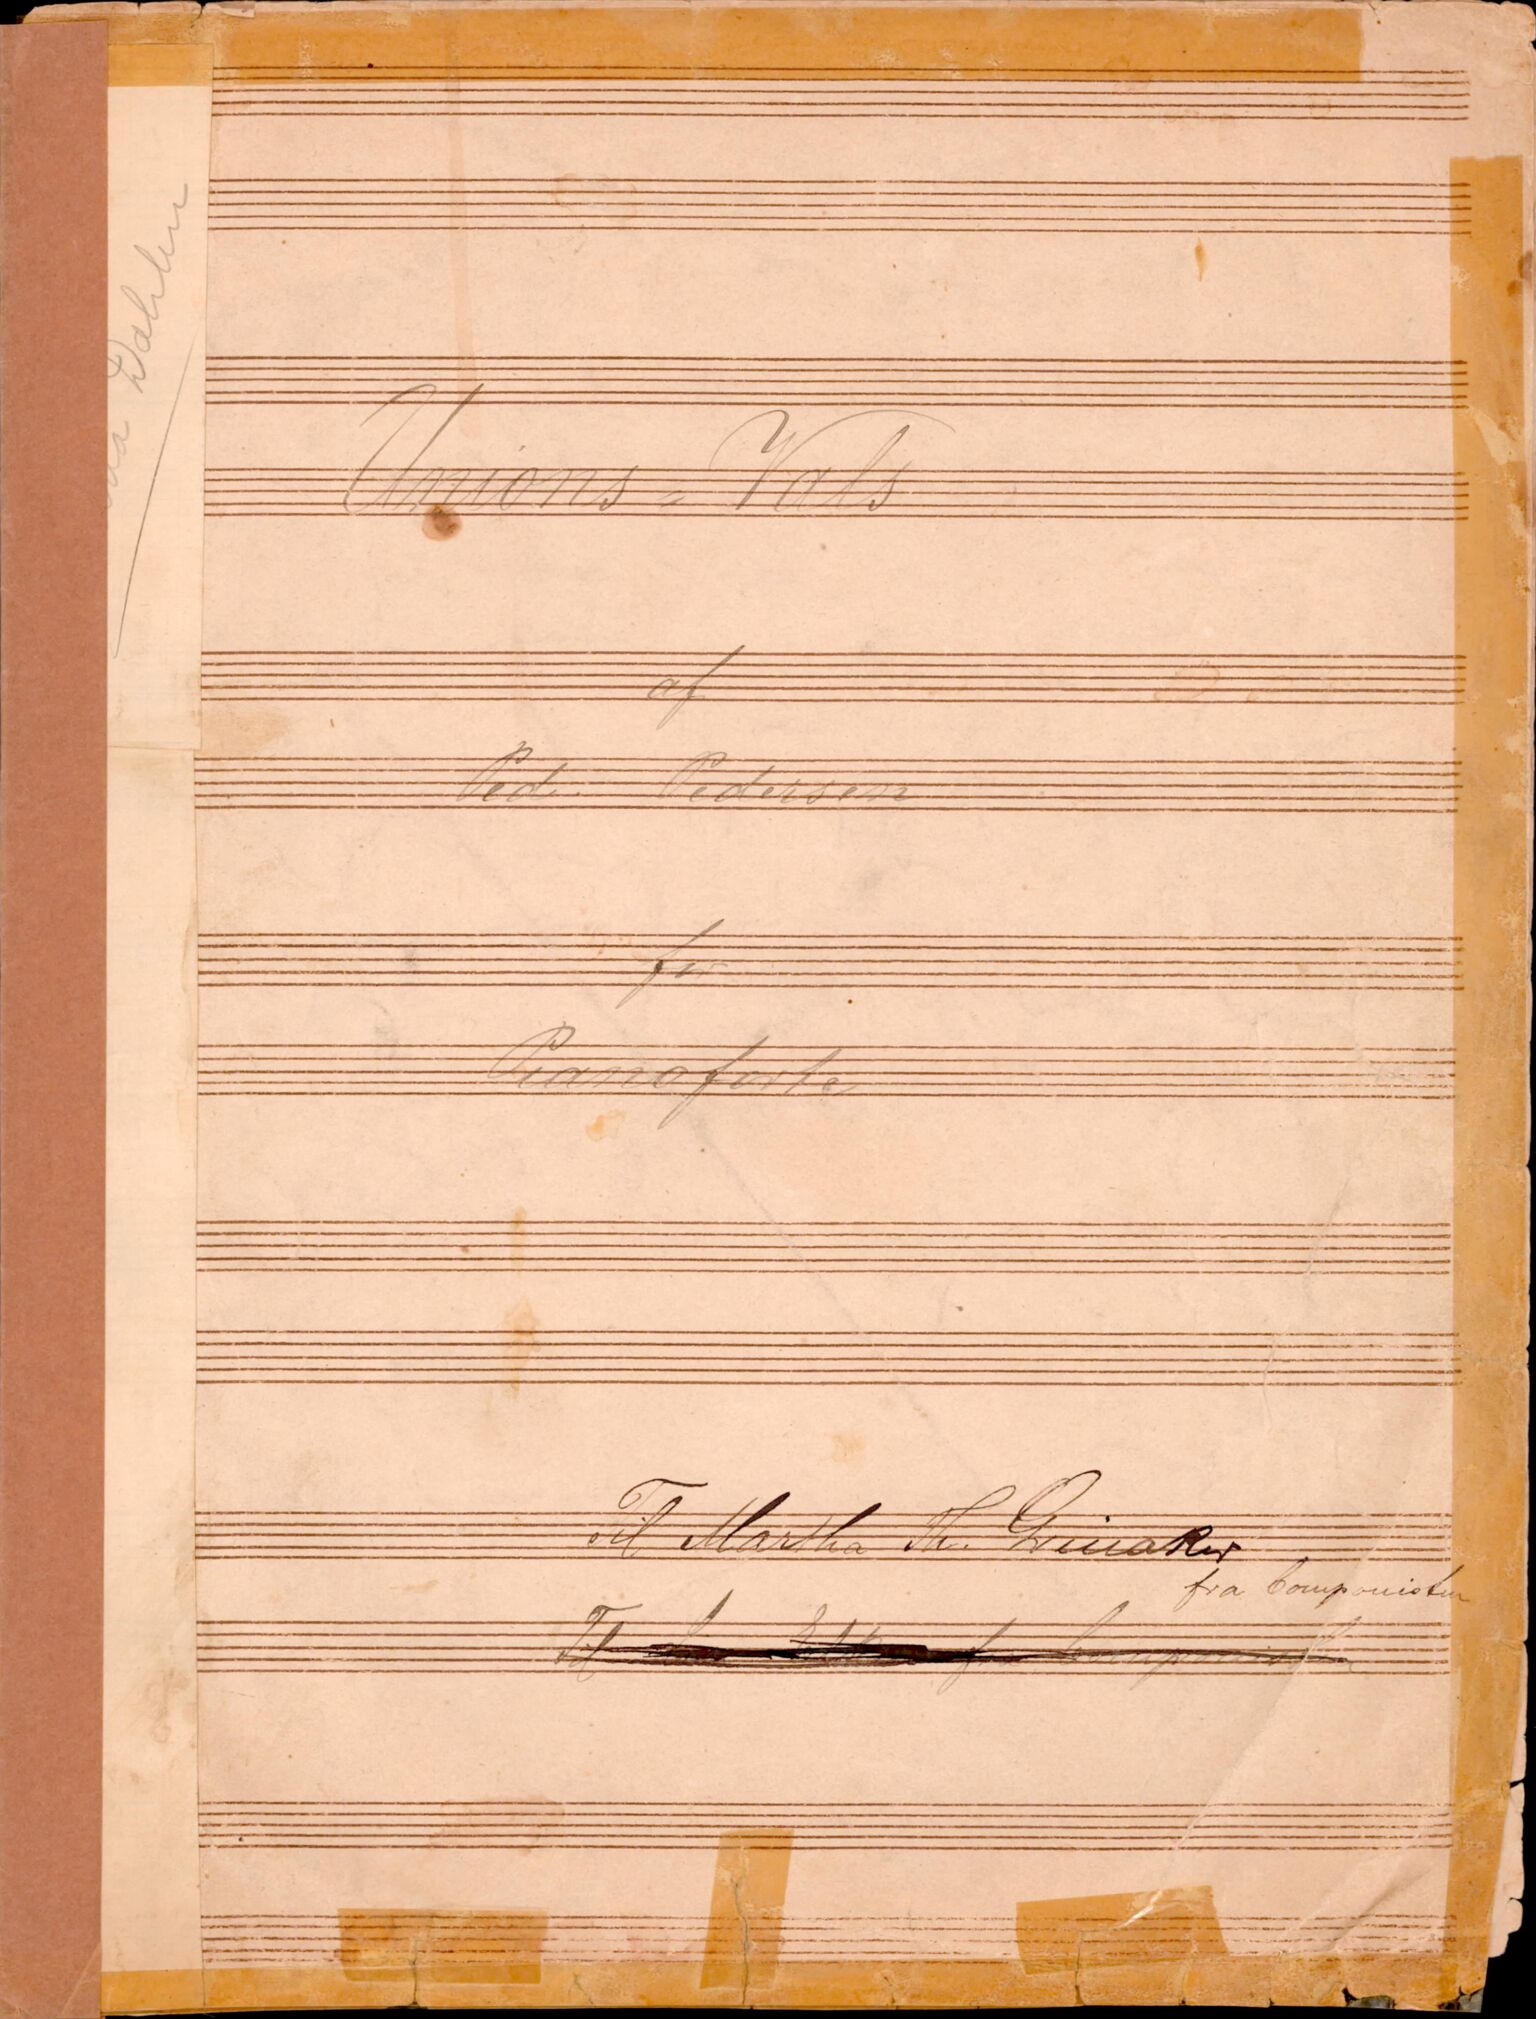 Dahlen
Unions-Vals
af
Ped. Pedersen
for
Pianoforte
Til Martha Th.
fra Componisten
Til fra Componisten